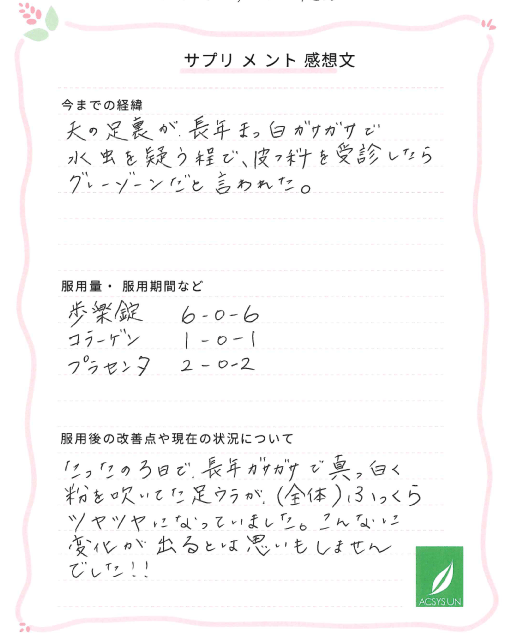 サプリメント感想文
今までの経緯
夫の足裏が、長年まっ白ガサガサで
水虫を疑う程で、皮フ科を受診したら
グレーゾーンだと言われた。
服用量・服用期間など
歩楽錠 6-0-6
コラーゲン 1-0-1
プラセンタ 2-0-2
服用後の改善点や現在の状況について
たったの3日で、長年ガサガサで真っ白く
粉を吹いてた足ウラが、(全体)ふっくら
ツヤツヤになっていました。こんなに
変化が出るとは思いもしません
でした!!
ACSYSUN